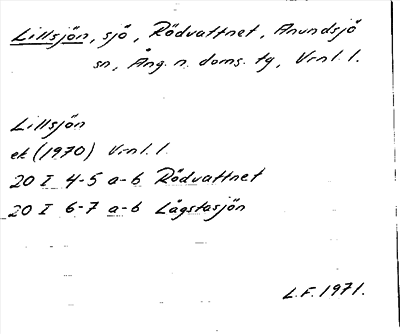 Lillsjön, sjö, Rödvattnet, Anundsjö
sn, Ång. n. doms. tg, Vrnl. l.
Lillsjön
ek (1970) Vrnl. l.
20 I 4-5 a-b Rödvattnet
20 I 6-7 a-b Lågstasjön
L.F. 1971.